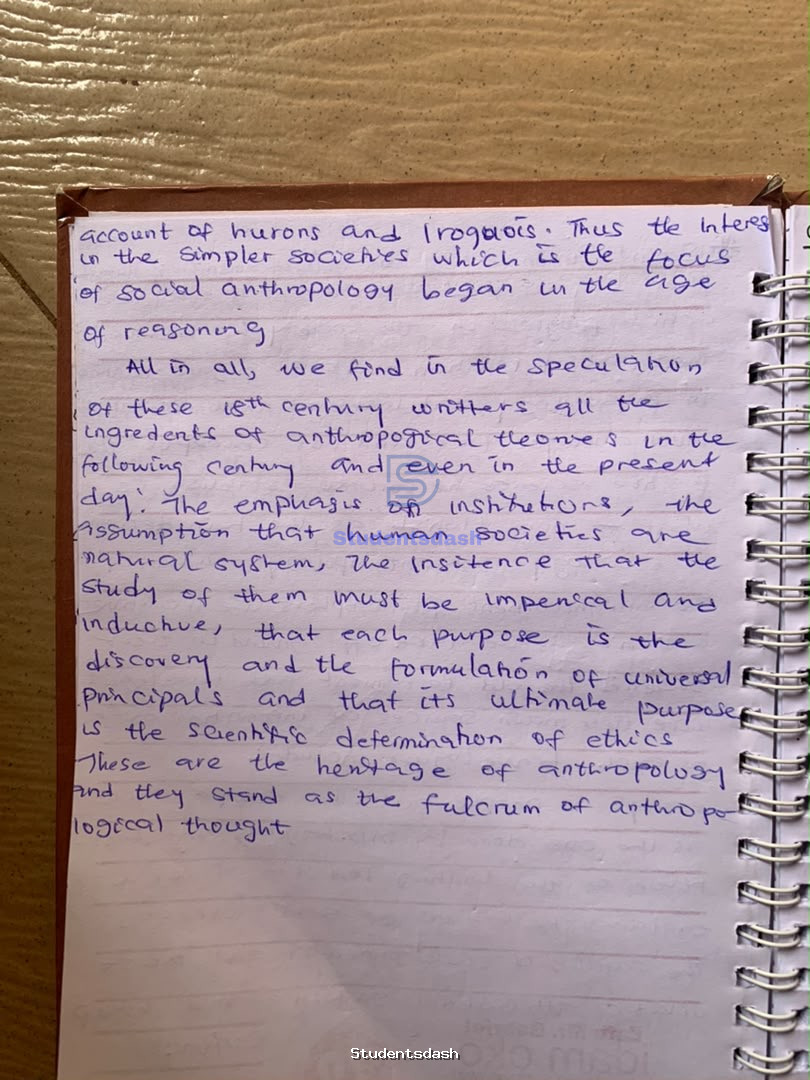 account of hurons and Iroquois. Thus the Interes
in the simpler societies which is the focus
of social anthropology began in the age
of reasoning
All in all, we find in the speculation
of these 18th century writters all the
ingredents of anthropogical theories in the
following century and even in the present
day. The emphasis on institutions, the
assumption that human societies are
natural system, The insitence that the
study of them must be imperical and
inductive, that each purpose is the
discovery and the formulation of universal
principals and that its ultimate purpose
is the scientific determination of ethics
These are the heritage of anthropology
and they stand as the fulcrum of anthropo
logical thought
Studentsdash
Studentsdash